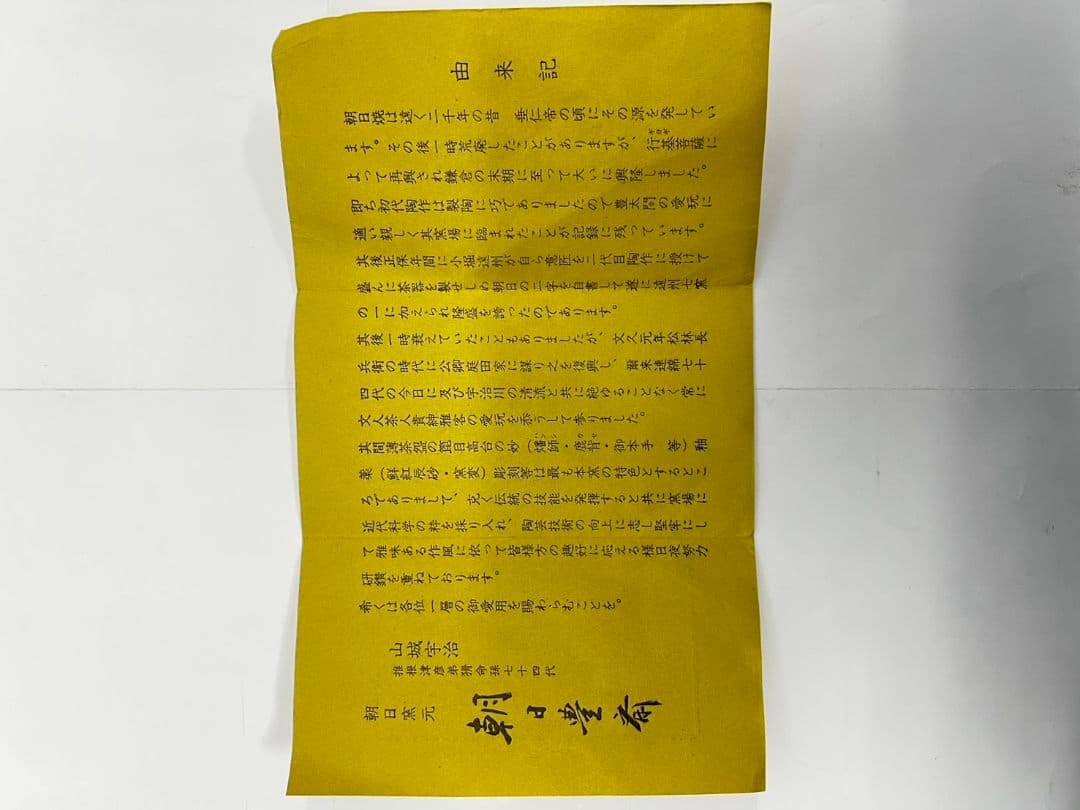 由来記
朝日焼は遠く二千年の昔 垂仁帝の頃にその源を発してい
ます。その後一時荒廃したことがありますが、行基菩薩に
よって再興され鎌倉の末期に至って大いに興隆しました。
即ち初代陶作は製陶に巧でありましたので豊太閤の愛玩に
適い親しく其窯場に臨まれたことが記録に残っています。
其後正保年間に小堀遠州が自ら意匠を二代目陶作に授けて
盛んに茶器を製せしめ朝日の二字を自書して遂に遠州七窯
の一に加えられ隆盛を誇ったのであります。
其後一時衰えていたこともありましたが、文久元年松林長
兵衛の時代に公卿庭田家に謀り之を復興し、爾来連綿七十
四代の今日に及び宇治川の清流と共に絶ゆることなく常に
文人茶人貴紳雅客の愛玩を忝うして参りました。
其間薄茶盌の箆目高台の妙(燔師・鹿背・御本手 等)釉
薬(鮮紅辰砂・窯変)彫刻等は最も本窯の特色とするとこ
ろでありまして、克く伝統の技能を発揮すると共に窯場に
近代科学の粋を採り入れ、陶芸技術の向上に志し堅牢にし
て雅味ある作風に依って皆様方の趣好に応える様日夜努力
研鑽を重ねております。
希くは各位一層の御愛用を賜わらむことを。
山城宇治
椎根津彦弟猾命孫七十四代
朝日窯元
朝日豊斎